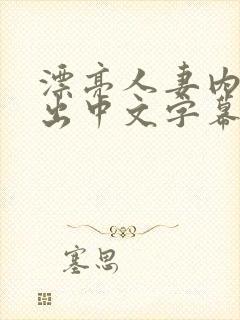 漂亮人妻内
出中文字幕
塞思